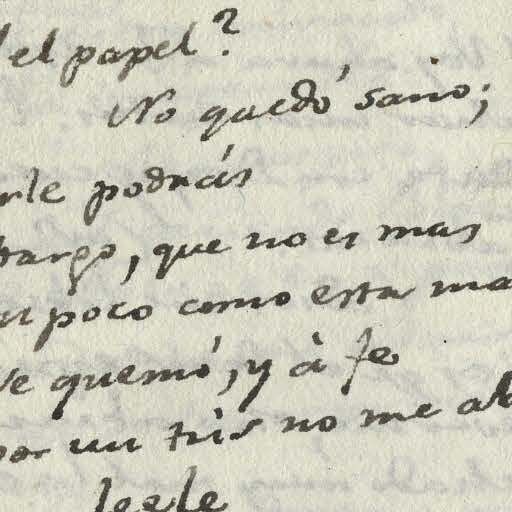 el papel?
No quedó sano;
rle podrás
bargo, que no es mas
un poco como esta ma
Se quemó, y à fe
por un tris no me ab
leele